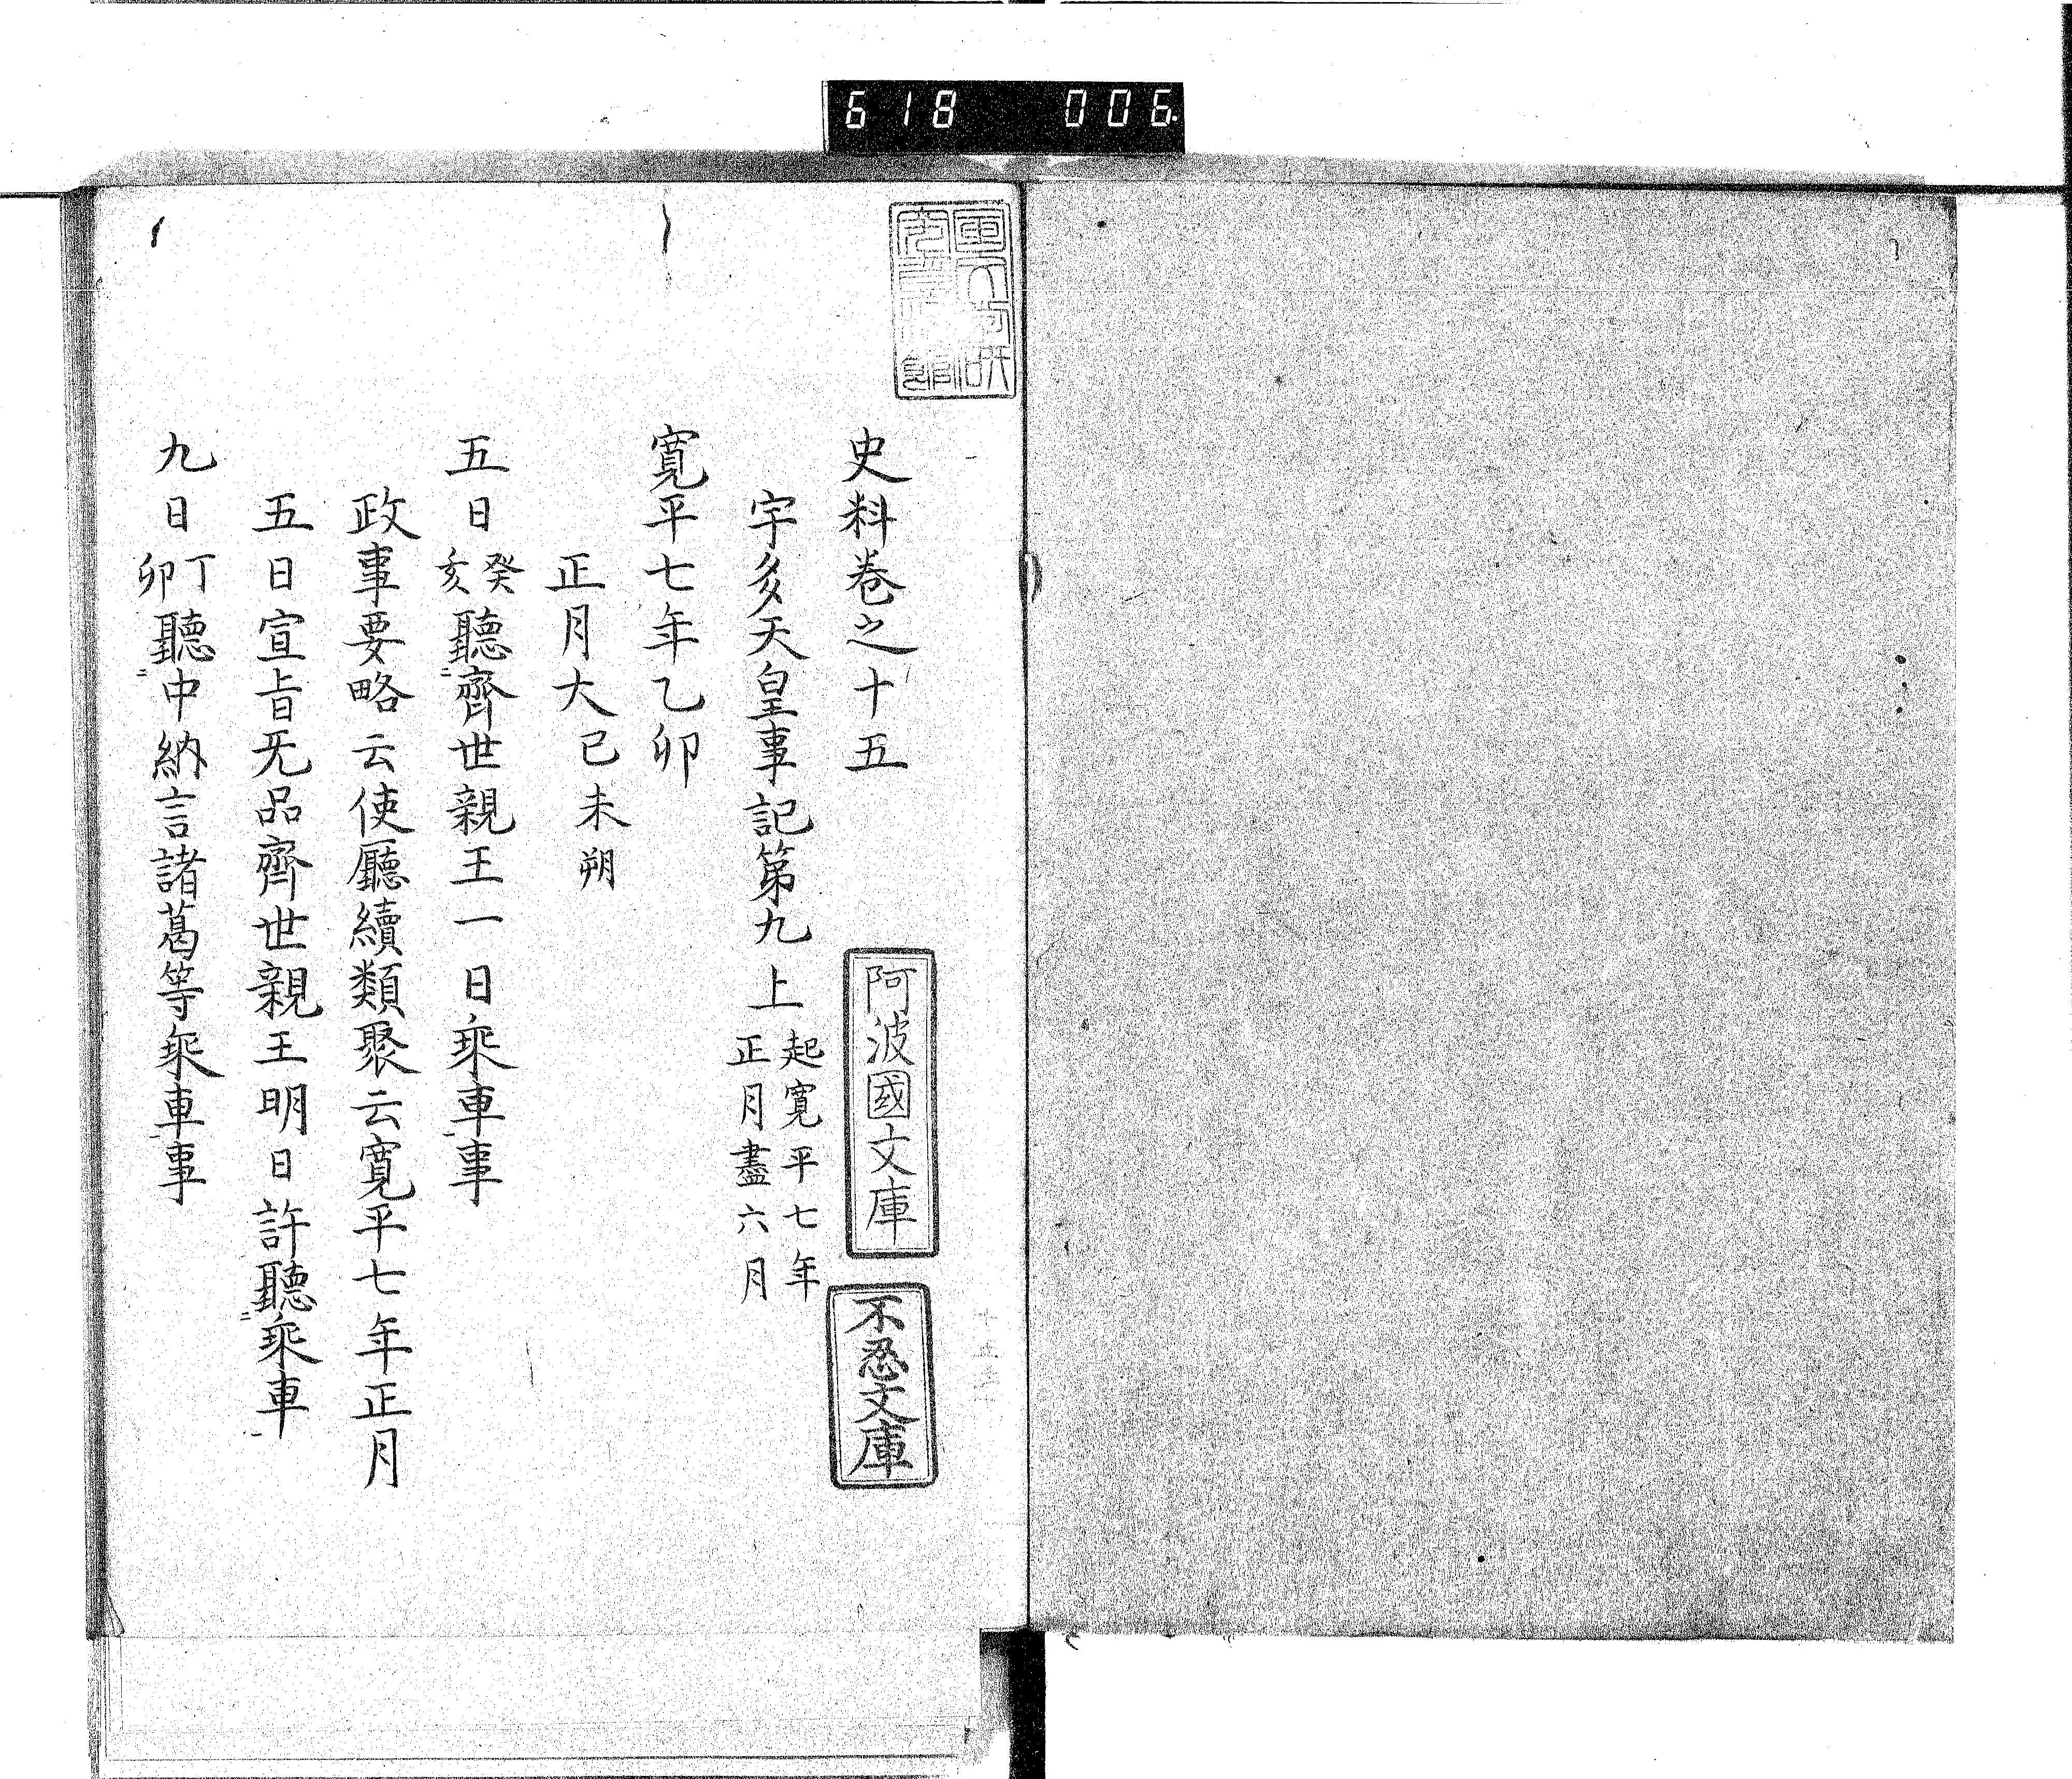 618 006
史料卷之十五
阿波國文庫
不忍文庫
宇多天皇事記第九上 起寛平七年正月盡六月
寛平七年乙卯
正月大己未朔
五日癸亥聽齊世親王一日乘車事
政事要略云使廳續類聚云寛平七年正月
五日宣旨无品齊世親王明日許聽乘車
九日丁卯聽中納言諸葛等乘車事